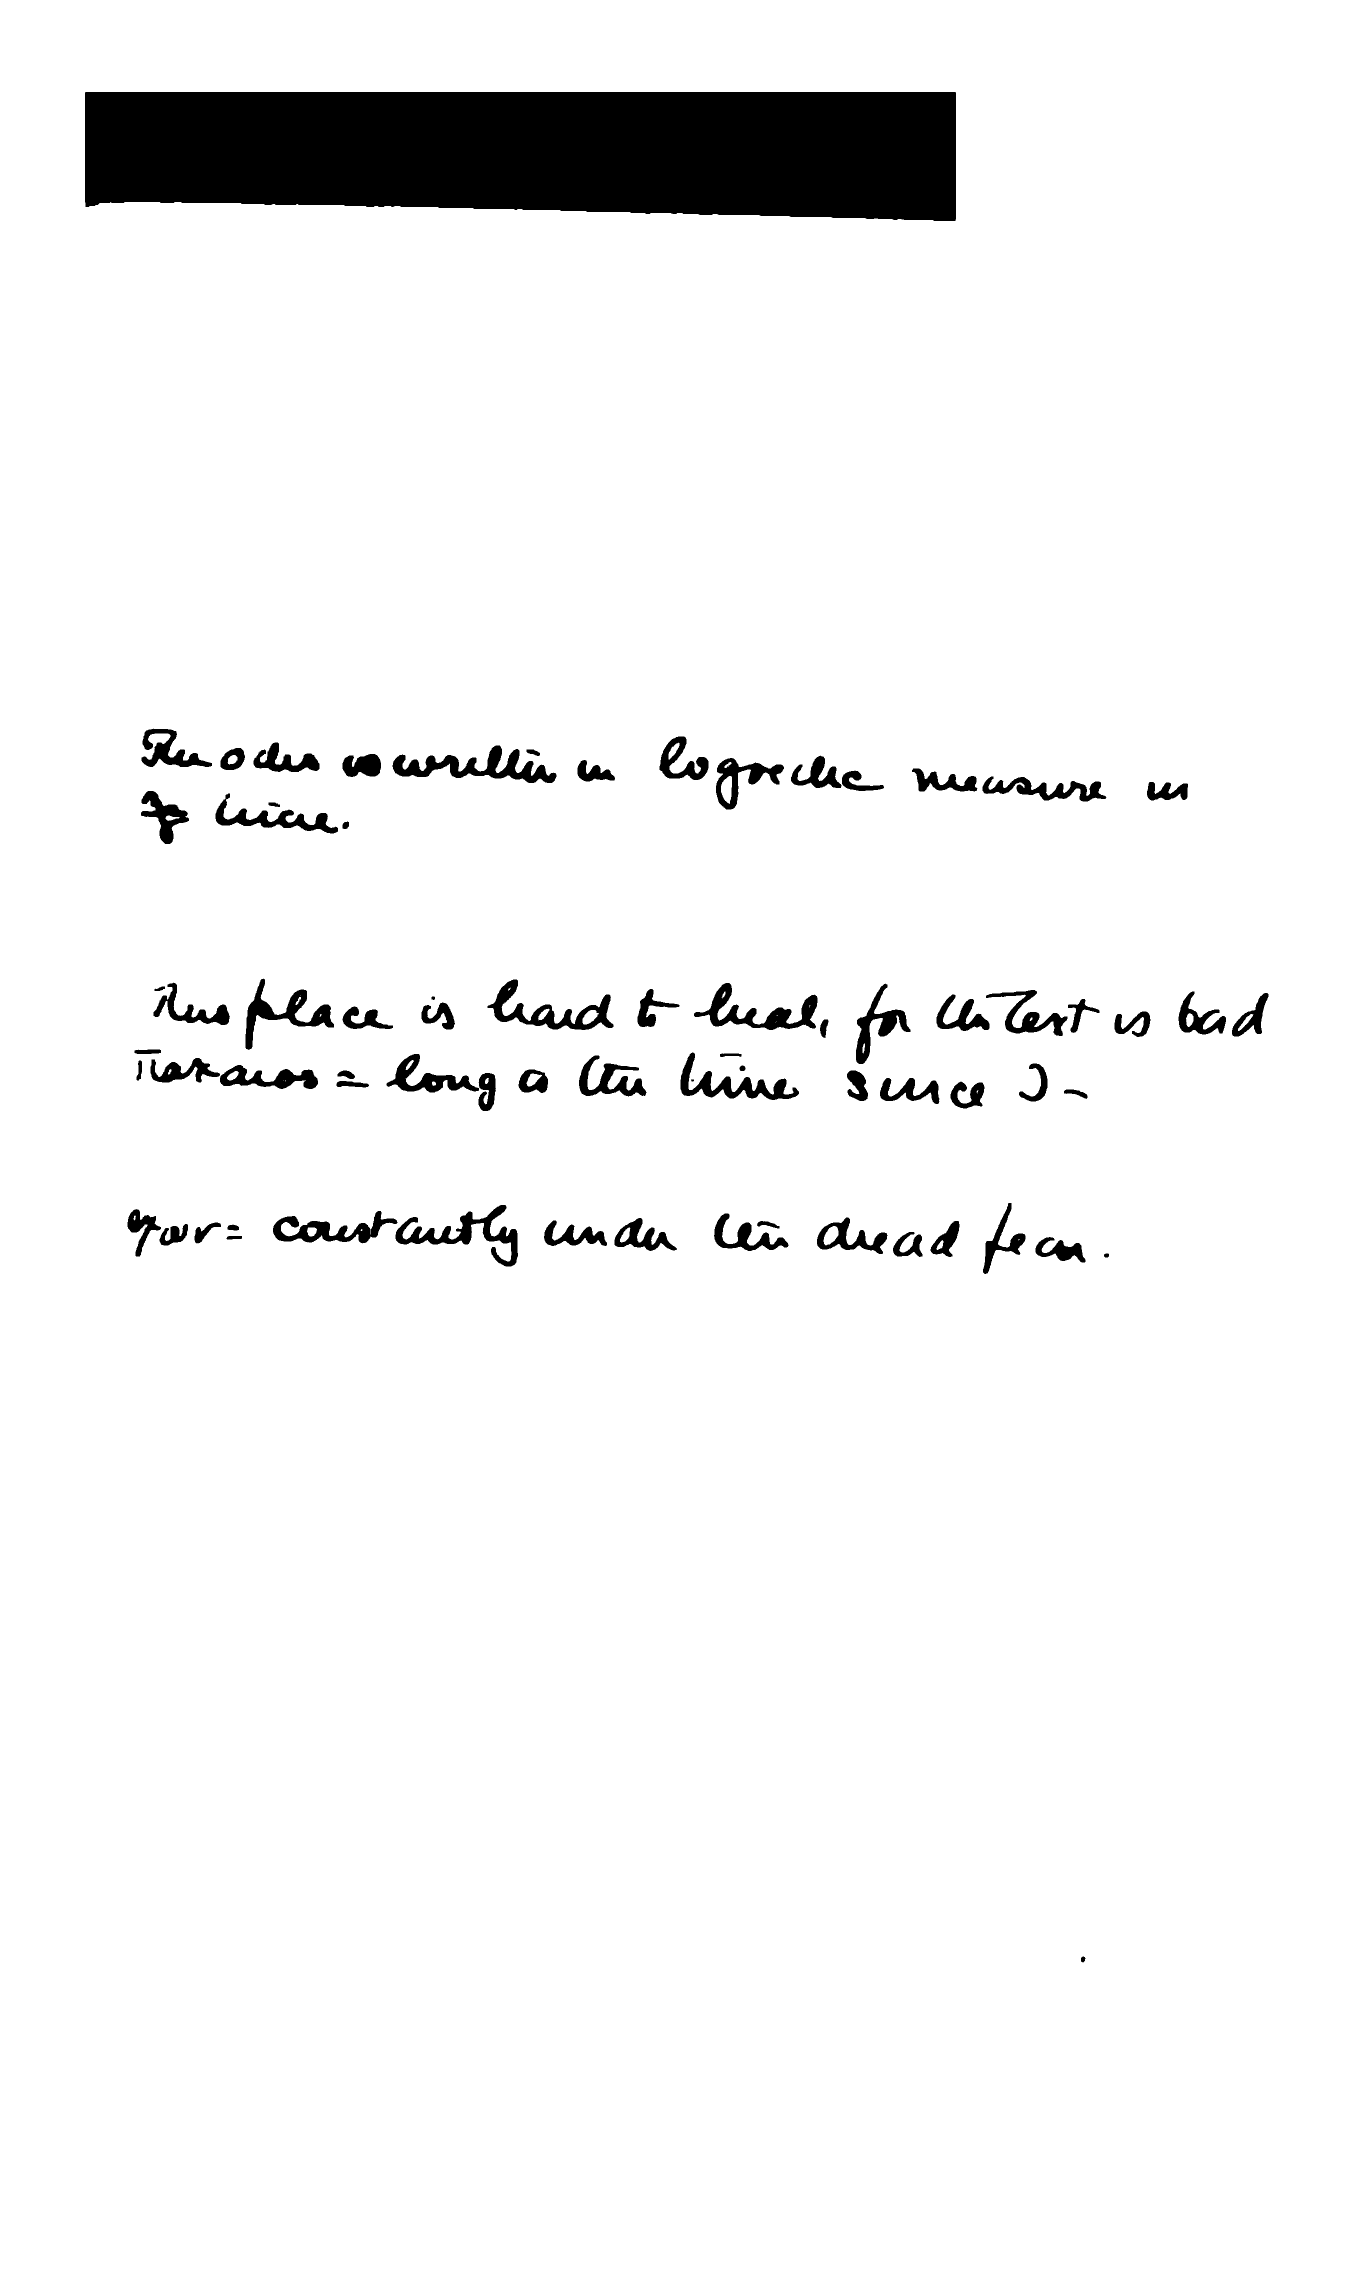 The odes is written in logaoedic measure in
time.
This place is hard to heal, for the text is bad
παλαιος = long is the time since I -
εχων = constantly under the dread fear.